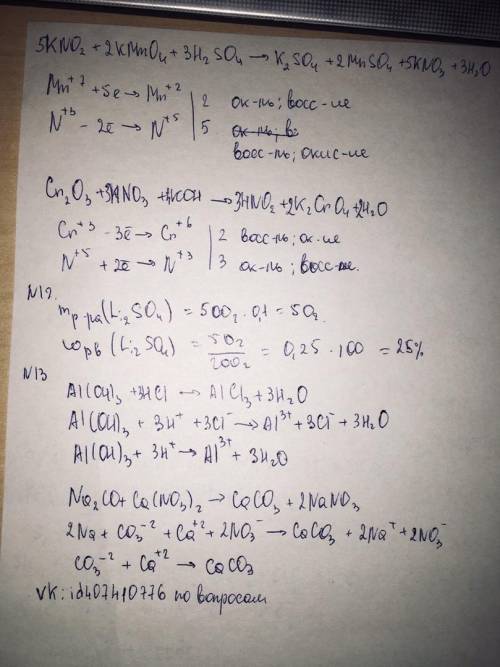 5KNO₂ + 2KMnO₄ + 3H₂SO₄ → K₂SO₄ + 2MnSO₄ + 5KNO₃ + 3H₂O
Mn⁺⁷ + 5e → Mn⁺² | 2 ок-ль; восс-ие
N⁺³ - 2ē → N⁺⁵ | 5 ок-ль; в
восс-ль; окис-ие
Cr₂O₃ + 3KNO₃ + 4KOH → 3KNO₂ + 2K₂CrO₄ + 2H₂O
Cr⁺³ - 3ē → Cr⁺⁶ | 2 восс-ль; ок-ие
N⁺⁵ + 2ē → N⁺³ | 3 ок-ль; восс-ие.
N12.
mр-ра(Li₂SO₄) = 500г · 0,1 = 50г
ωрв (Li₂SO₄) = 50г/200г = 0,25 · 100 = 25%
N13
Al(OH)₃ + 3HCl → AlCl₃ + 3H₂O
Al(OH)₃ + 3H⁺ + 3Cl⁻ → Al³⁺ + 3Cl⁻ + 3H₂O
Al(OH)₃ + 3H⁺ → Al³⁺ + 3H₂O
Na₂CO + Ca(NO₃)₂ → CaCO₃ + 2NaNO₃
2Na + CO₃⁻² + Ca⁺² + 2NO₃⁻ → CaCO₃ + 2Na⁺ + 2NO₃⁻
CO₃⁻² + Ca⁺² → CaCO₃
vk: id407410776 по вопросам